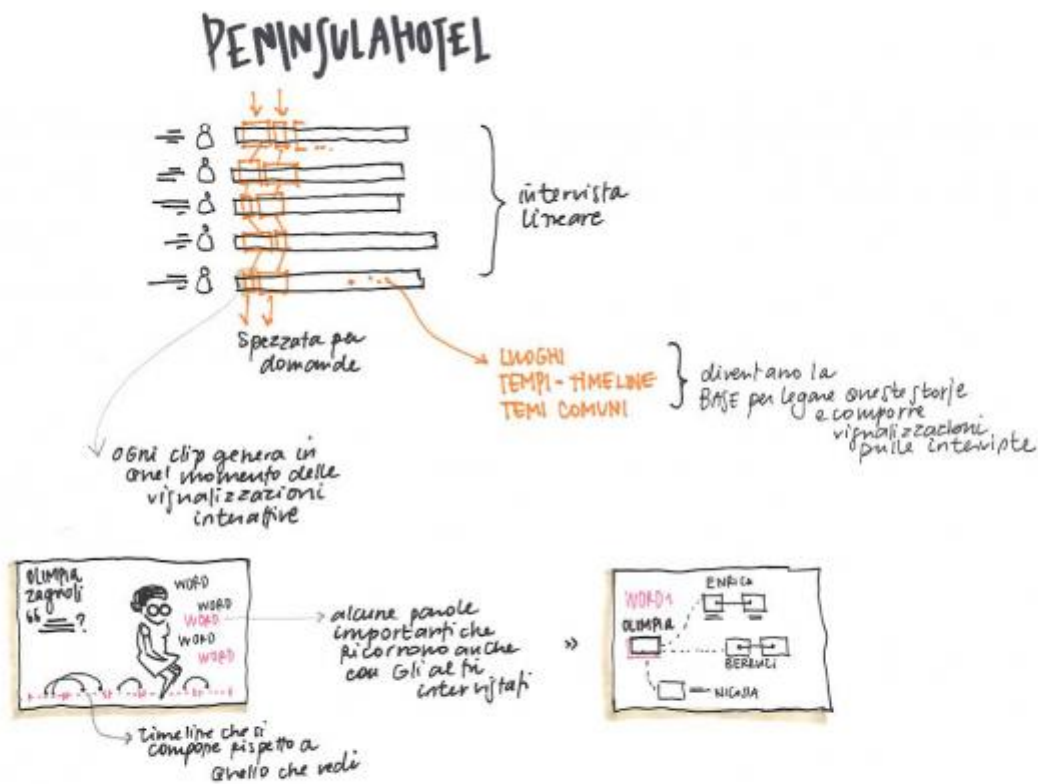 PENINSULAHOTEL
intervista
lineare
Spezzata per
domande
LUOGHI
TEMPI-TIMELINE
TEMI COMUNI
diventano la
BASE per legare queste storie
e comporre
visualizzazioni
sulle interviste
OGni clip genera in
quel momento delle
visualizzazioni
interattive
OLIMPIA
Zagnoli
“ ?
WORD
WORD
WORD
WORD
WORD
alcune parole
importanti che
Ricorrono anche
con Gli altri
intervistati
»
WORD1
OLIMPIA
ENRICA
NICOSIA
timeline che si
compone rispetto a
quello che vedi